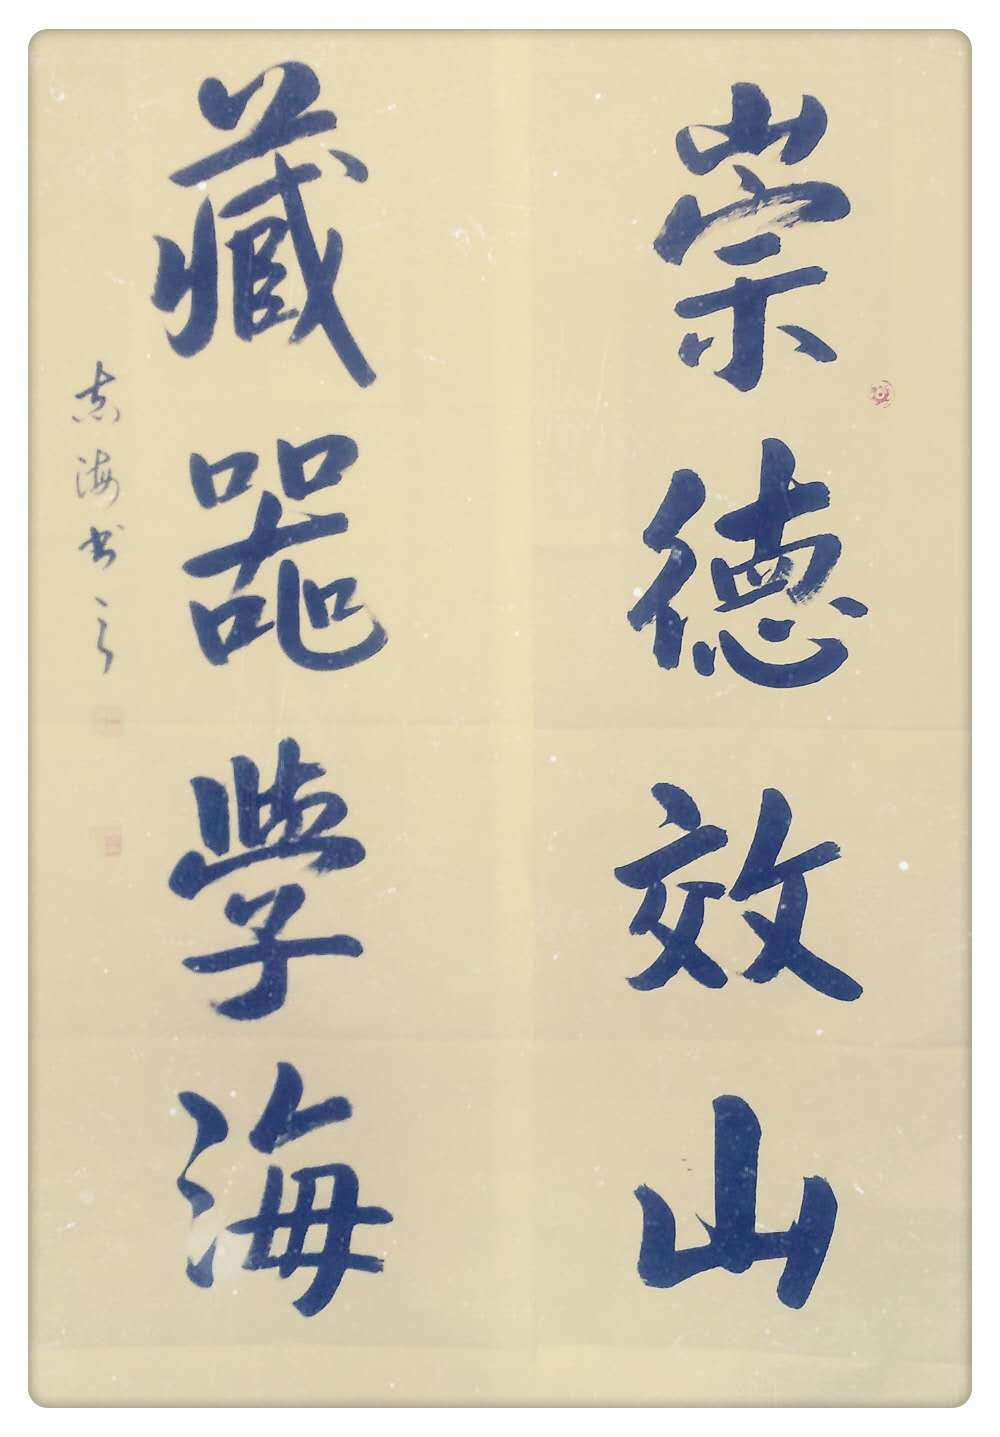 崇德效山
藏器學海
志海书